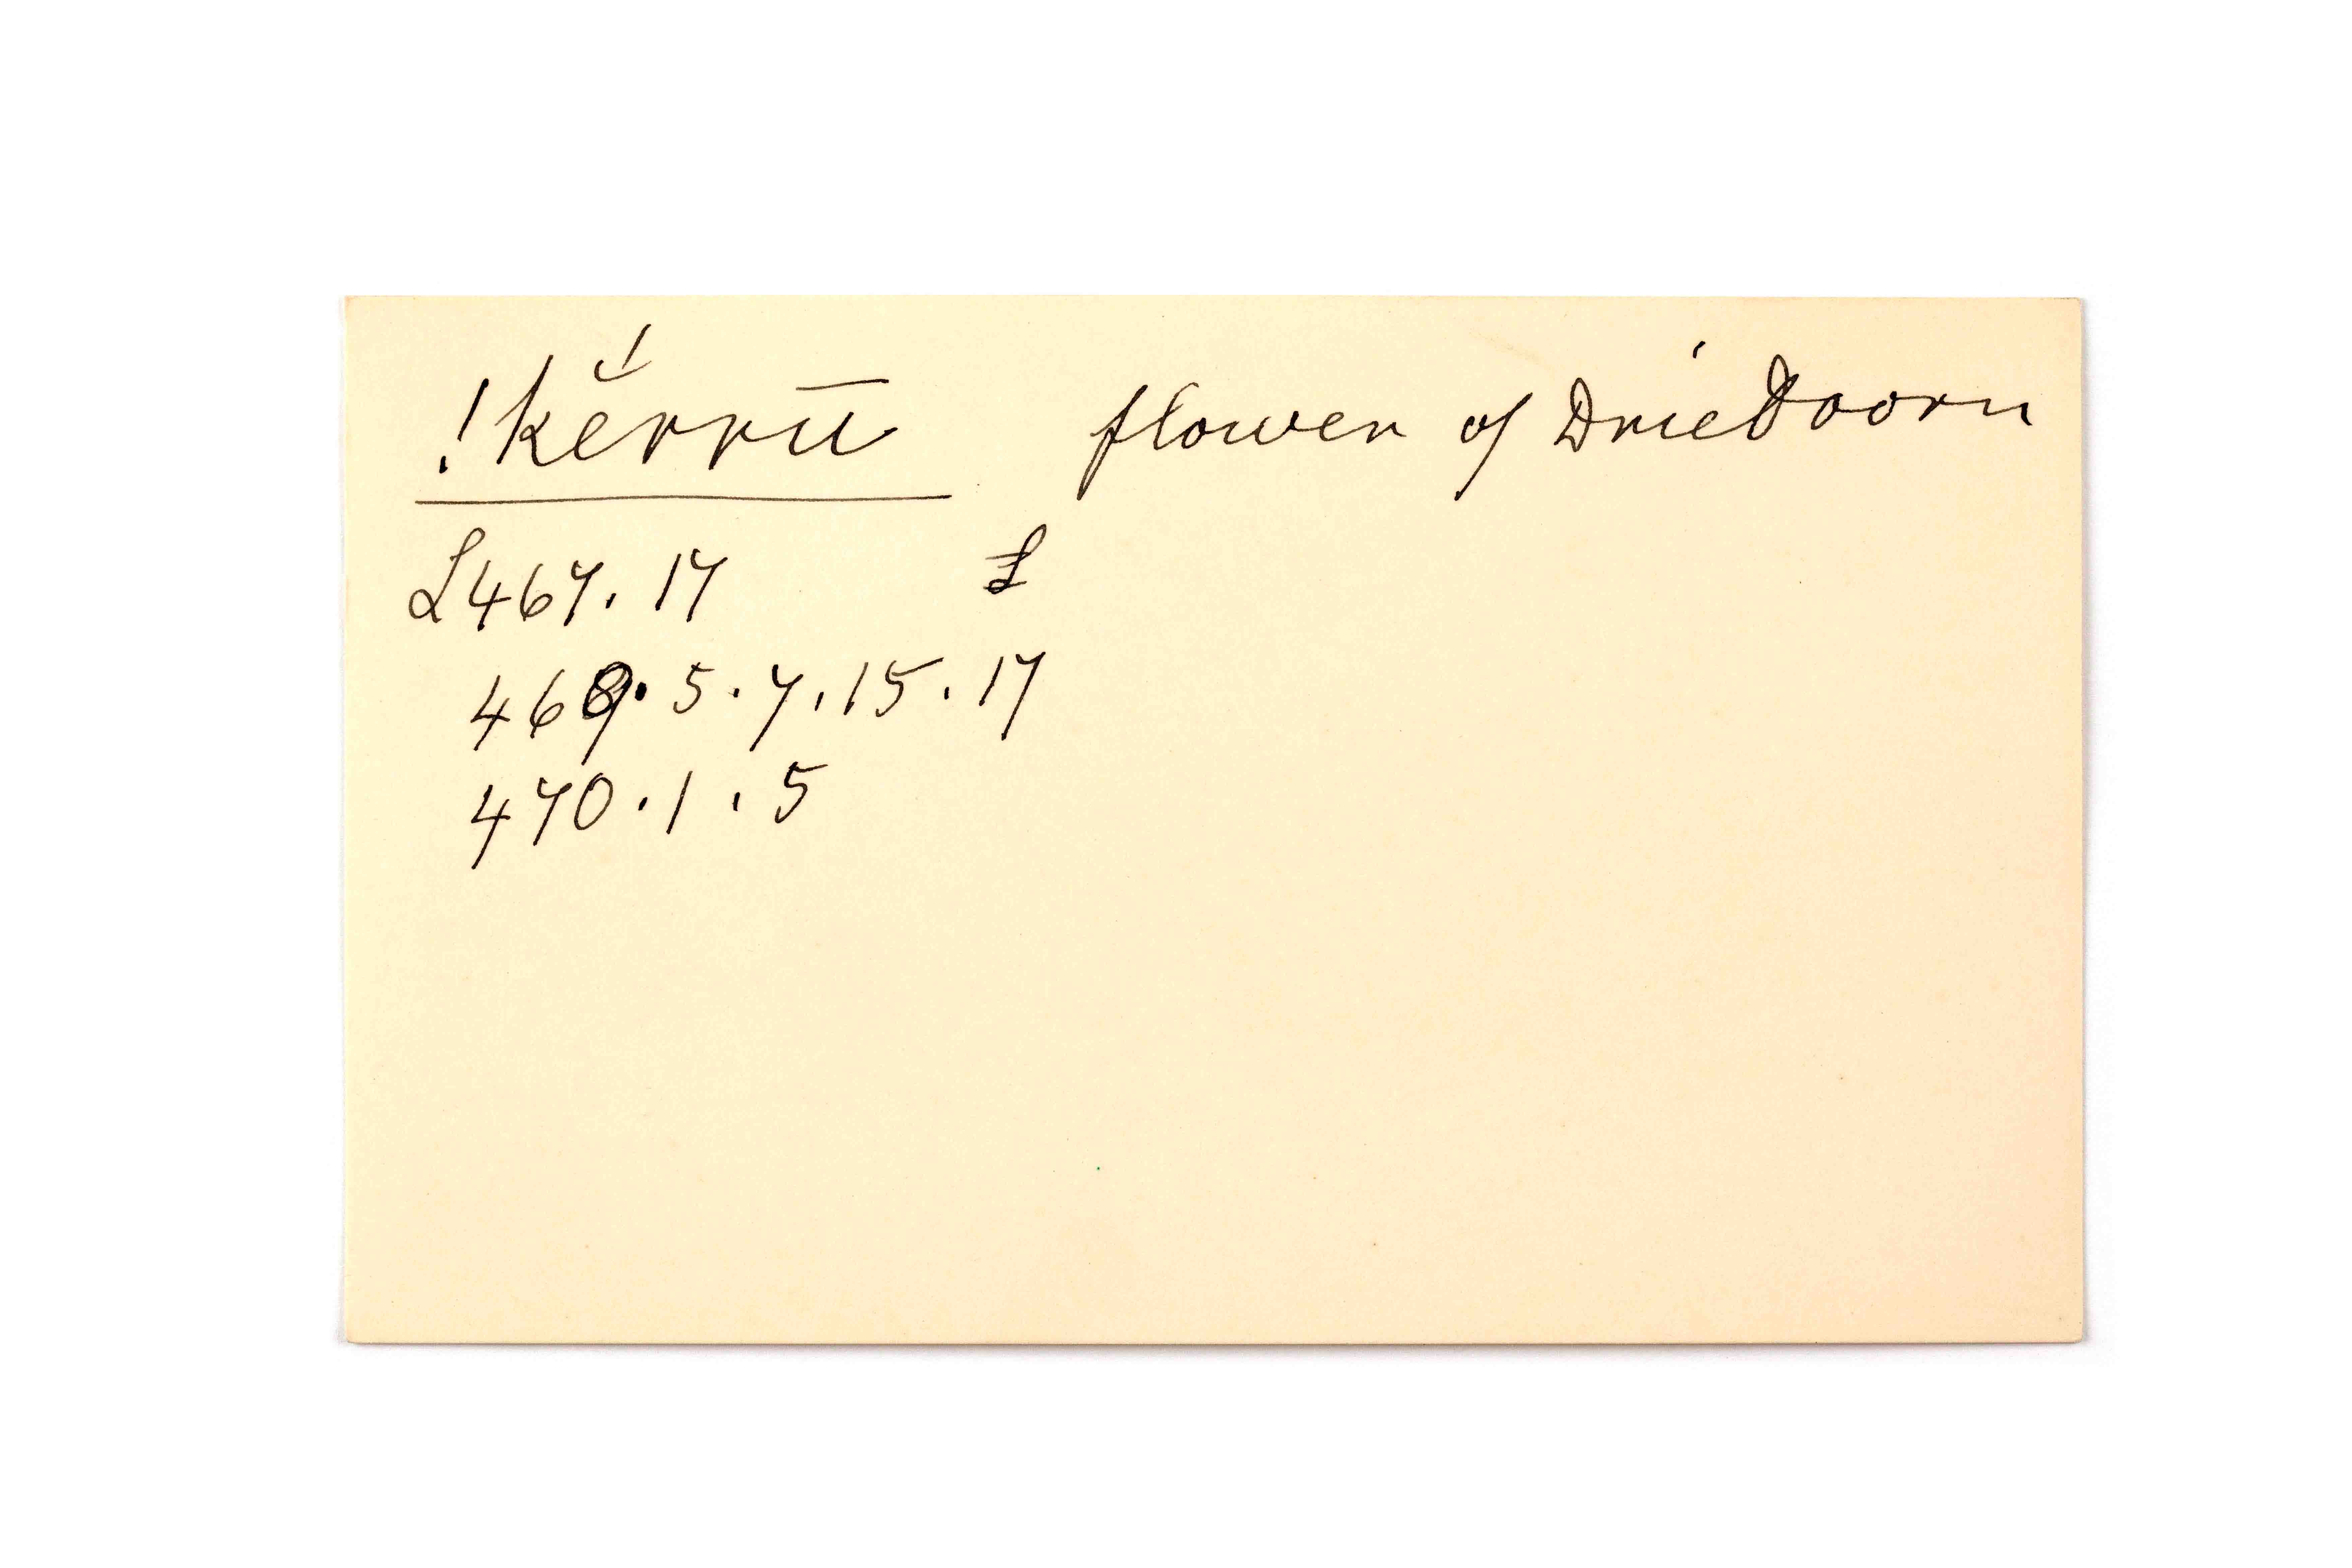 !kĕ́rrū flower of DrieDoorn
L467. 17 L
469. 5. 7. 15. 17
470. 1. 5